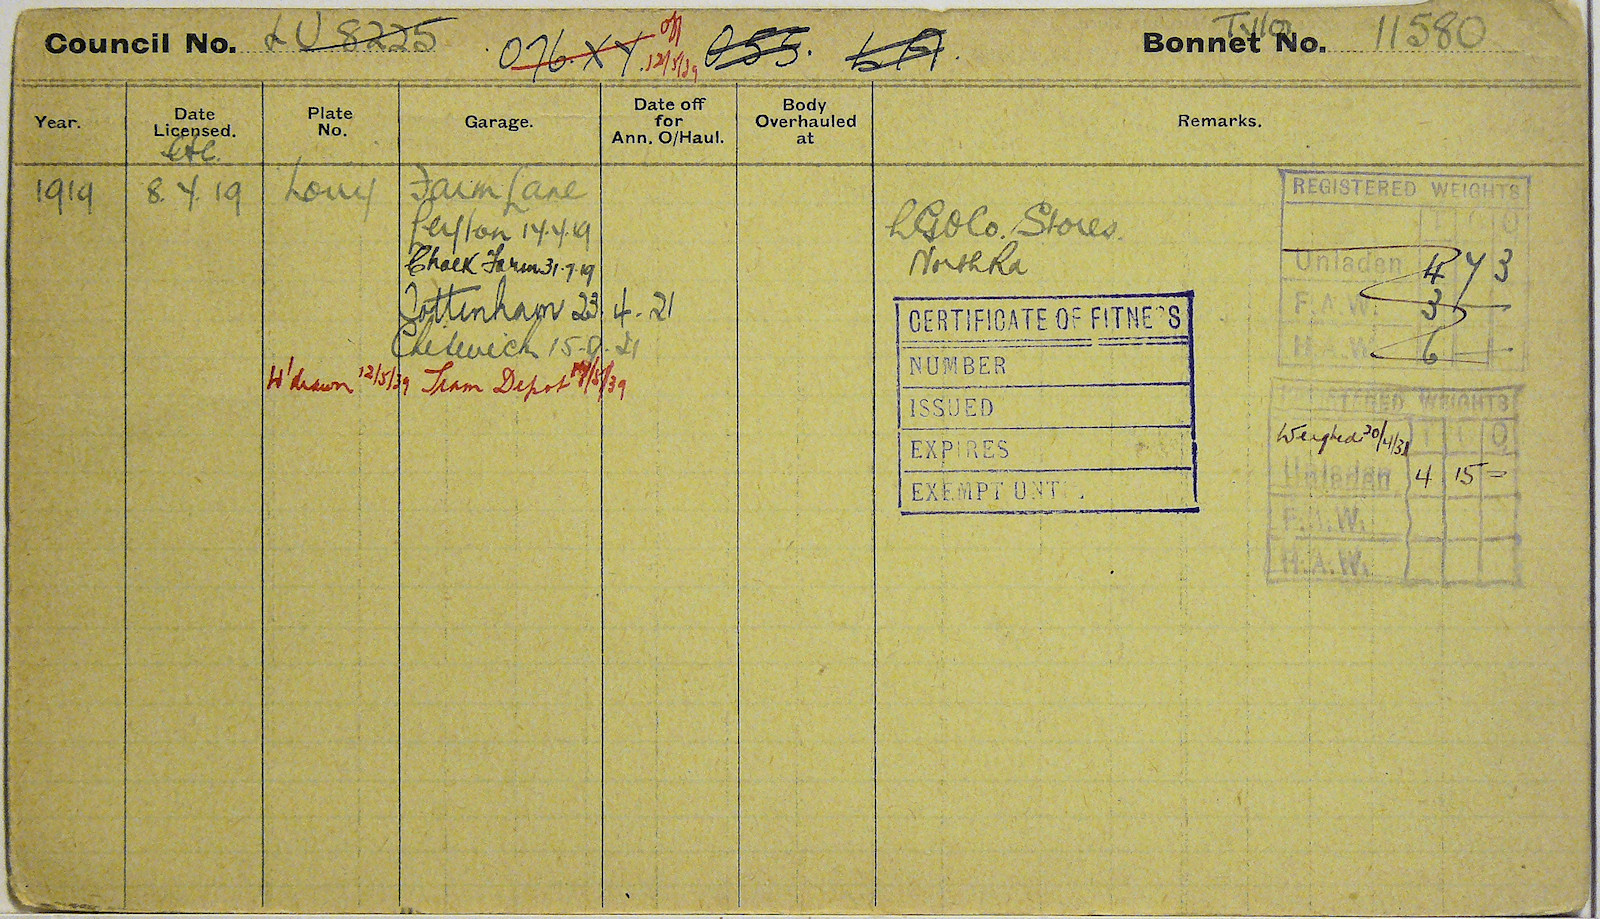 Council No. LU 8225 076. XY. off 12/5/39 055.
Tiller
Bonnet No. 11580
Year.
Date Licensed.
Plate No.
Garage.
Date off for Ann. O/Haul.
Body Overhauled at
Remarks.
1919 8.4.19 Lorry Farm Lane
Leyton 14.4.19
Chalk Farm 31.7.19
Tottenham 23.4.21
Chiswick 15.9.21
W'drawn 12/5/39 Tram Depot /5/39
LGOCo. Stores.
North Rd
CERTIFICATE OF FITNESS
NUMBER
ISSUED
EXPIRES
EXEMPT UNTIL
REGISTERED WEIGHTS
T C Q
Unladen 4 7 3
F.A.W. 3 —
H.A.W. 6 —
REGISTERED WEIGHTS
Weighed 30/4/31 T C Q
Unladen 4 15 =
F.A.W.
H.A.W.